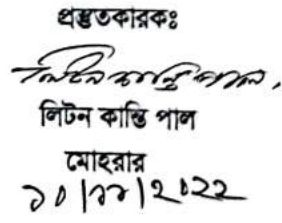 প্রস্তুতকারকঃ
লিটন কান্তি পাল,
লিটন কান্তি পাল
মোহরার
১০/১১/২০২২